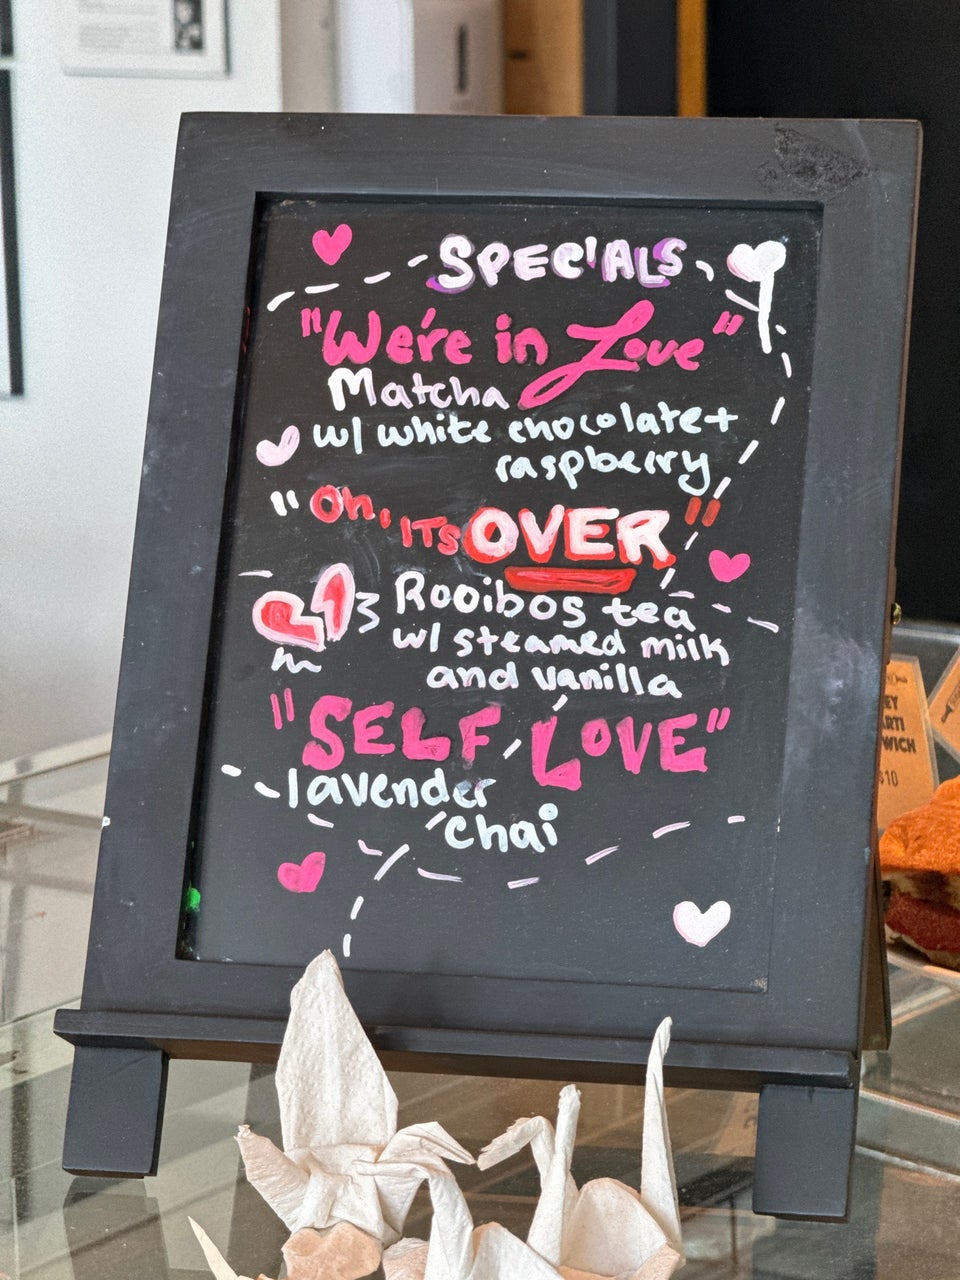 SPECIALS
"We're in Love"
Matcha
w/ white chocolate +
raspberry
"Oh, ITS OVER"
Rooibos tea
w/ steamed milk
and vanilla
"SELF LOVE"
lavender
chai
WICH
$10